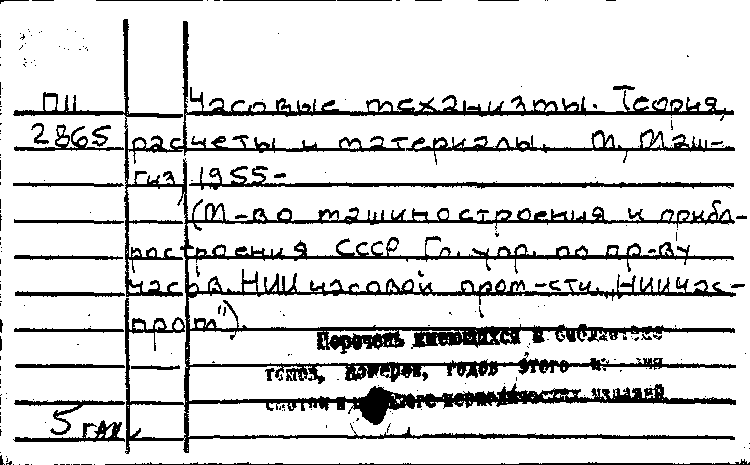 П11 Часовые механизмы. Теория,
2865 расчеты и материалы. М., Маш-
гиз, 1955-
(М-во машиностроения и прибо-
ростроения СССР. Гл. упр. по пр-ву
часов. НИИ часовой пром-сти. „НИИчас-
пром").
Перечень имеющихся в библиотеке
томов, номеров, годов этого
смотри в периодических изданий
5